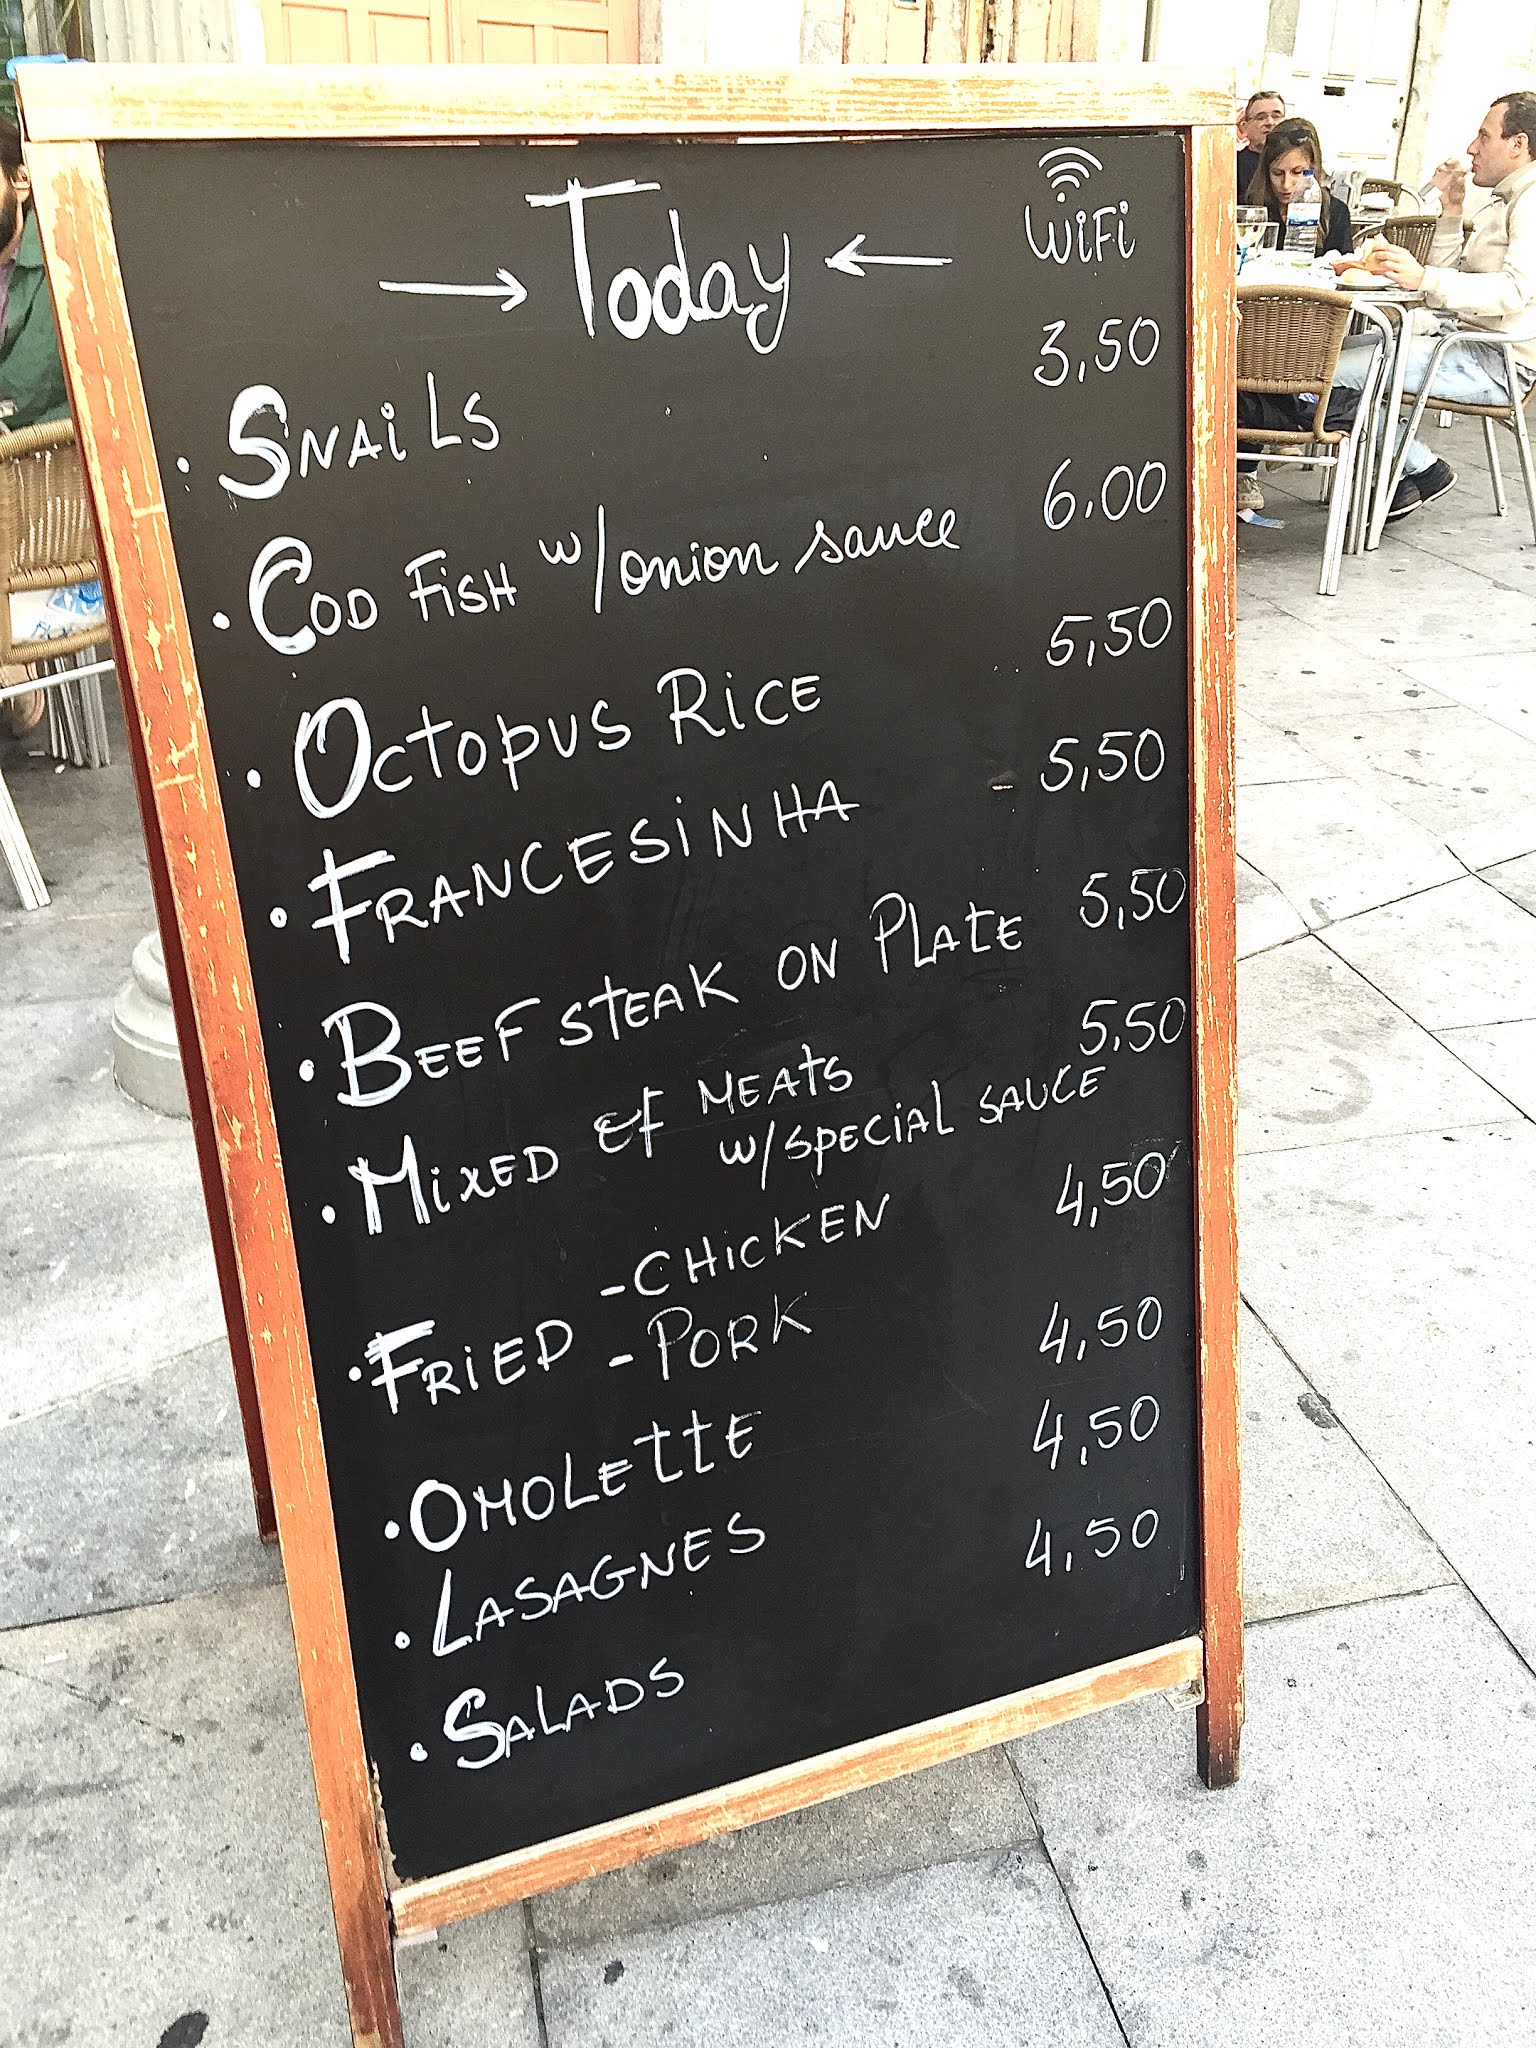 WiFi
→ Today ←
· Snails 3,50
· Cod Fish w/onion sauce 6.00
· Octopus Rice 5,50
· Francesinha - 5,50
· Beef steak on Plate 5,50
· Mixed of Meats 5,50
w/special sauce
- Chicken 4,50
· Fried - Pork
· Omolette 4,50
· Lasagnes 4,50
· Salads 4,50